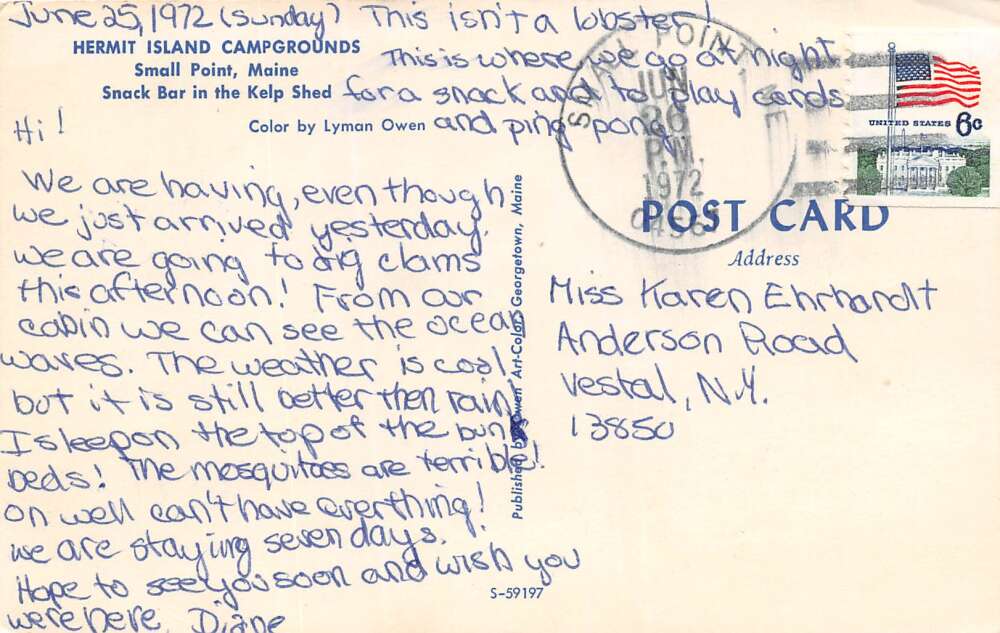 June 25, 1972 (Sunday) This isn't a lobster!
HERMIT ISLAND CAMPGROUNDS
Small Point, Maine
Snack Bar in the Kelp Shed
Color by Lyman Owen
This is where we go at night
for a snack and to play cards
and ping pong
Hi!
We are having, even though
we just arrived yesterday.
we are going to dig clams
this afternoon! From our
cabin we can see the ocean
waves. The weather is cool,
but it is still better then rain!
I sleep on the top of the bunk
beds! The mosquitoes are terrible!
Oh well can't have everthing!
we are staying seven days.
Hope to see you soon and wish you
were here, Diane
Published by Owen Art-Color, Georgetown, Maine
S-59197
SMALL POINT
JUN
26
P.M.
1972
UNITED STATES 6c
POST CARD
Address
Miss Karen Ehrhardt
Anderson Road
Vestal, N.Y.
13850